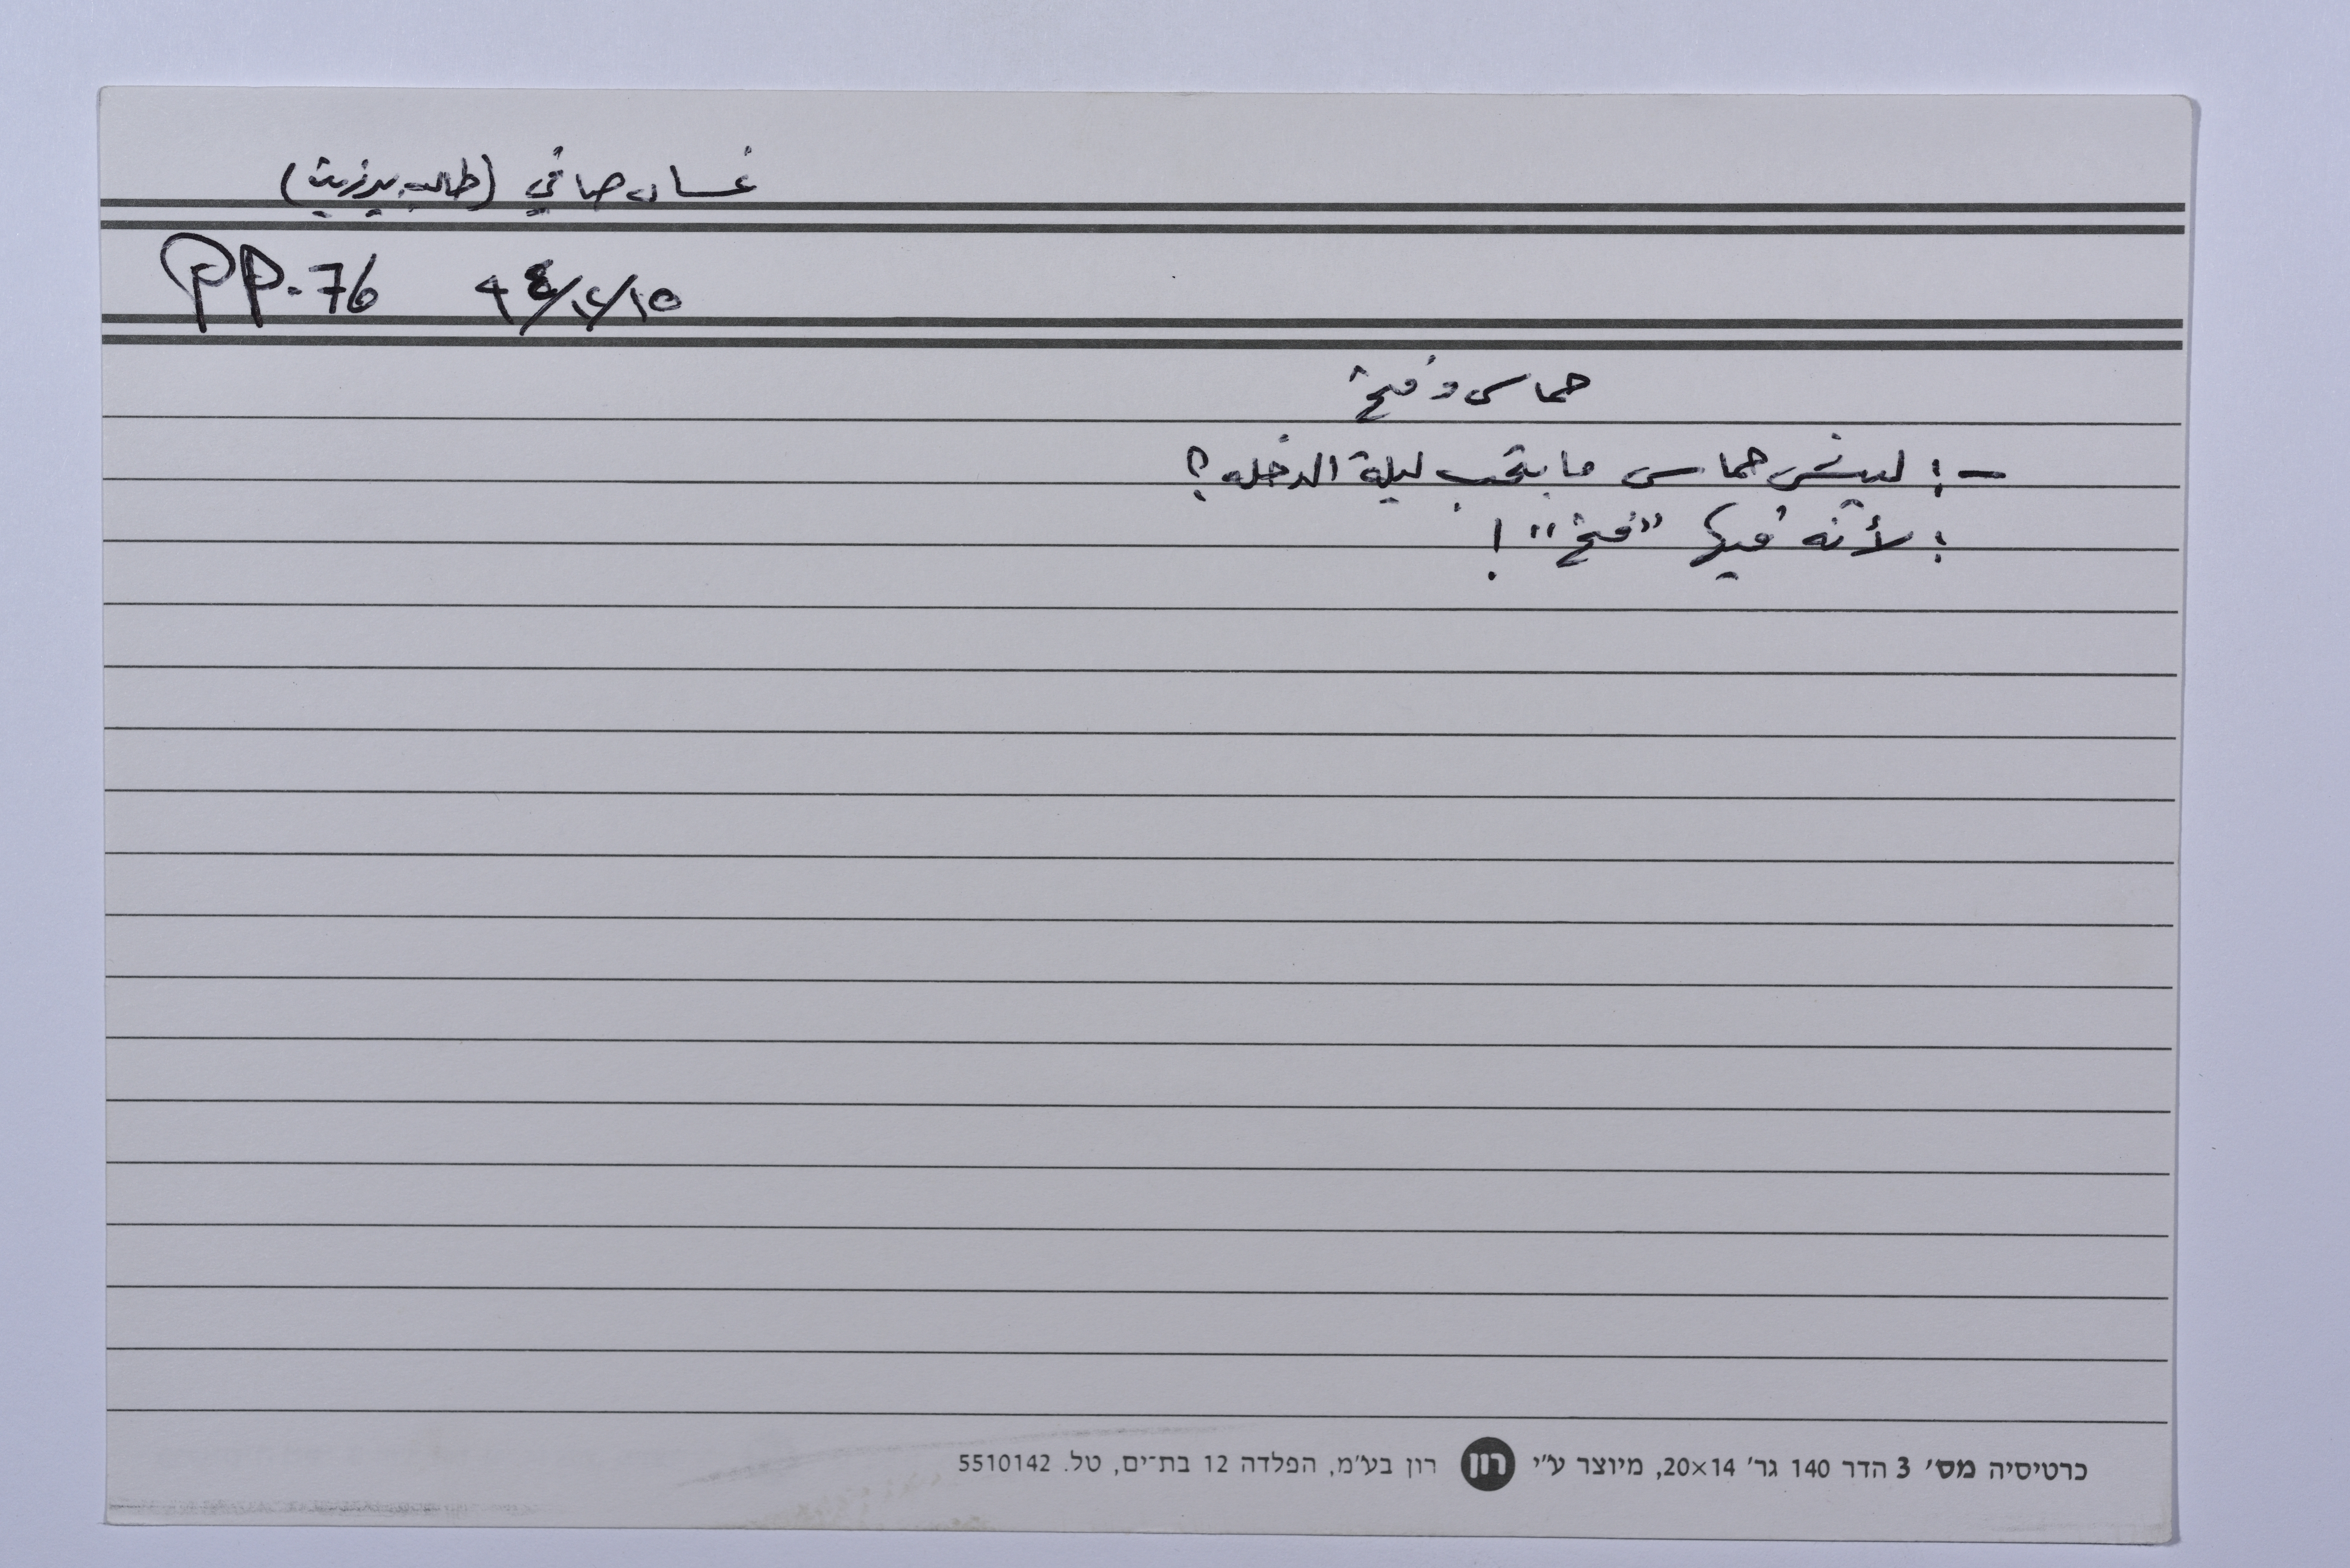 غسان صافي (طالب بيرزيت)
PP-76 ٩٤/١٢/١٥
حماس وفتح
- : ليش حماس ما بتحب ليلة الدخله ؟
: لأنّه فيها "فتح" !
כרטיסיה מס׳ 3 הדר 140 גר׳ 20×14, מיוצר ע״י רון רון בע״מ, הפלדה 12 בת־ים, טל. 5510142